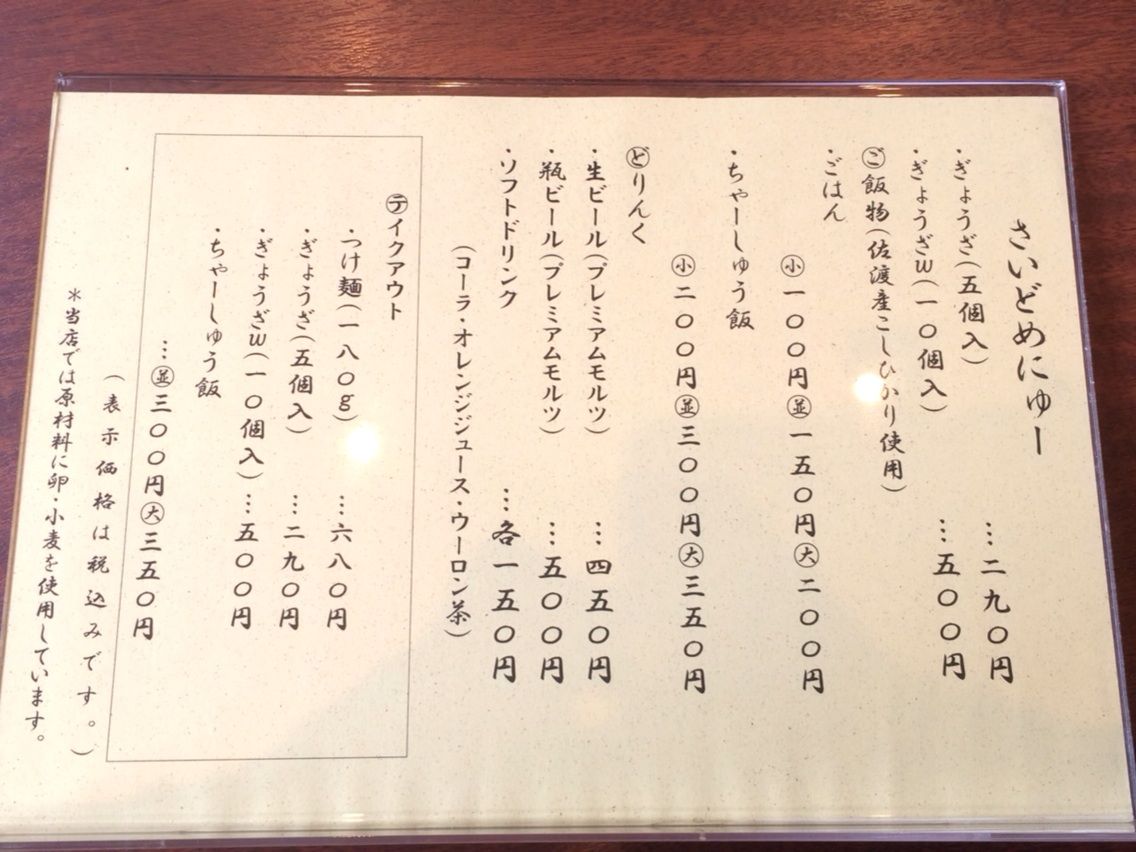 さいどめにゅー
・ぎょうざ(五個入)…二九〇円
・ぎょうざw(一〇個入)…五〇〇円
ご飯物(佐渡産こしひかり使用)
・ごはん
小一〇〇円並一五〇円大二〇〇円
・ちゃーしゅう飯
小二〇〇円並三〇〇円大三五〇円
どりんく
・生ビール(プレミアムモルツ)…四五〇円
・瓶ビール(プレミアムモルツ)…五〇〇円
・ソフトドリンク…各一五〇円
(コーラ・オレンジジュース・ウーロン茶)
テイクアウト
・つけ麺(一八〇g)…六八〇円
・ぎょうざ(五個入)…二九〇円
・ぎょうざw(一〇個入)…五〇〇円
・ちゃーしゅう飯
…並三〇〇円大三五〇円
(表示価格は税込みです。)
*当店では原材料に卵・小麦を使用しています。